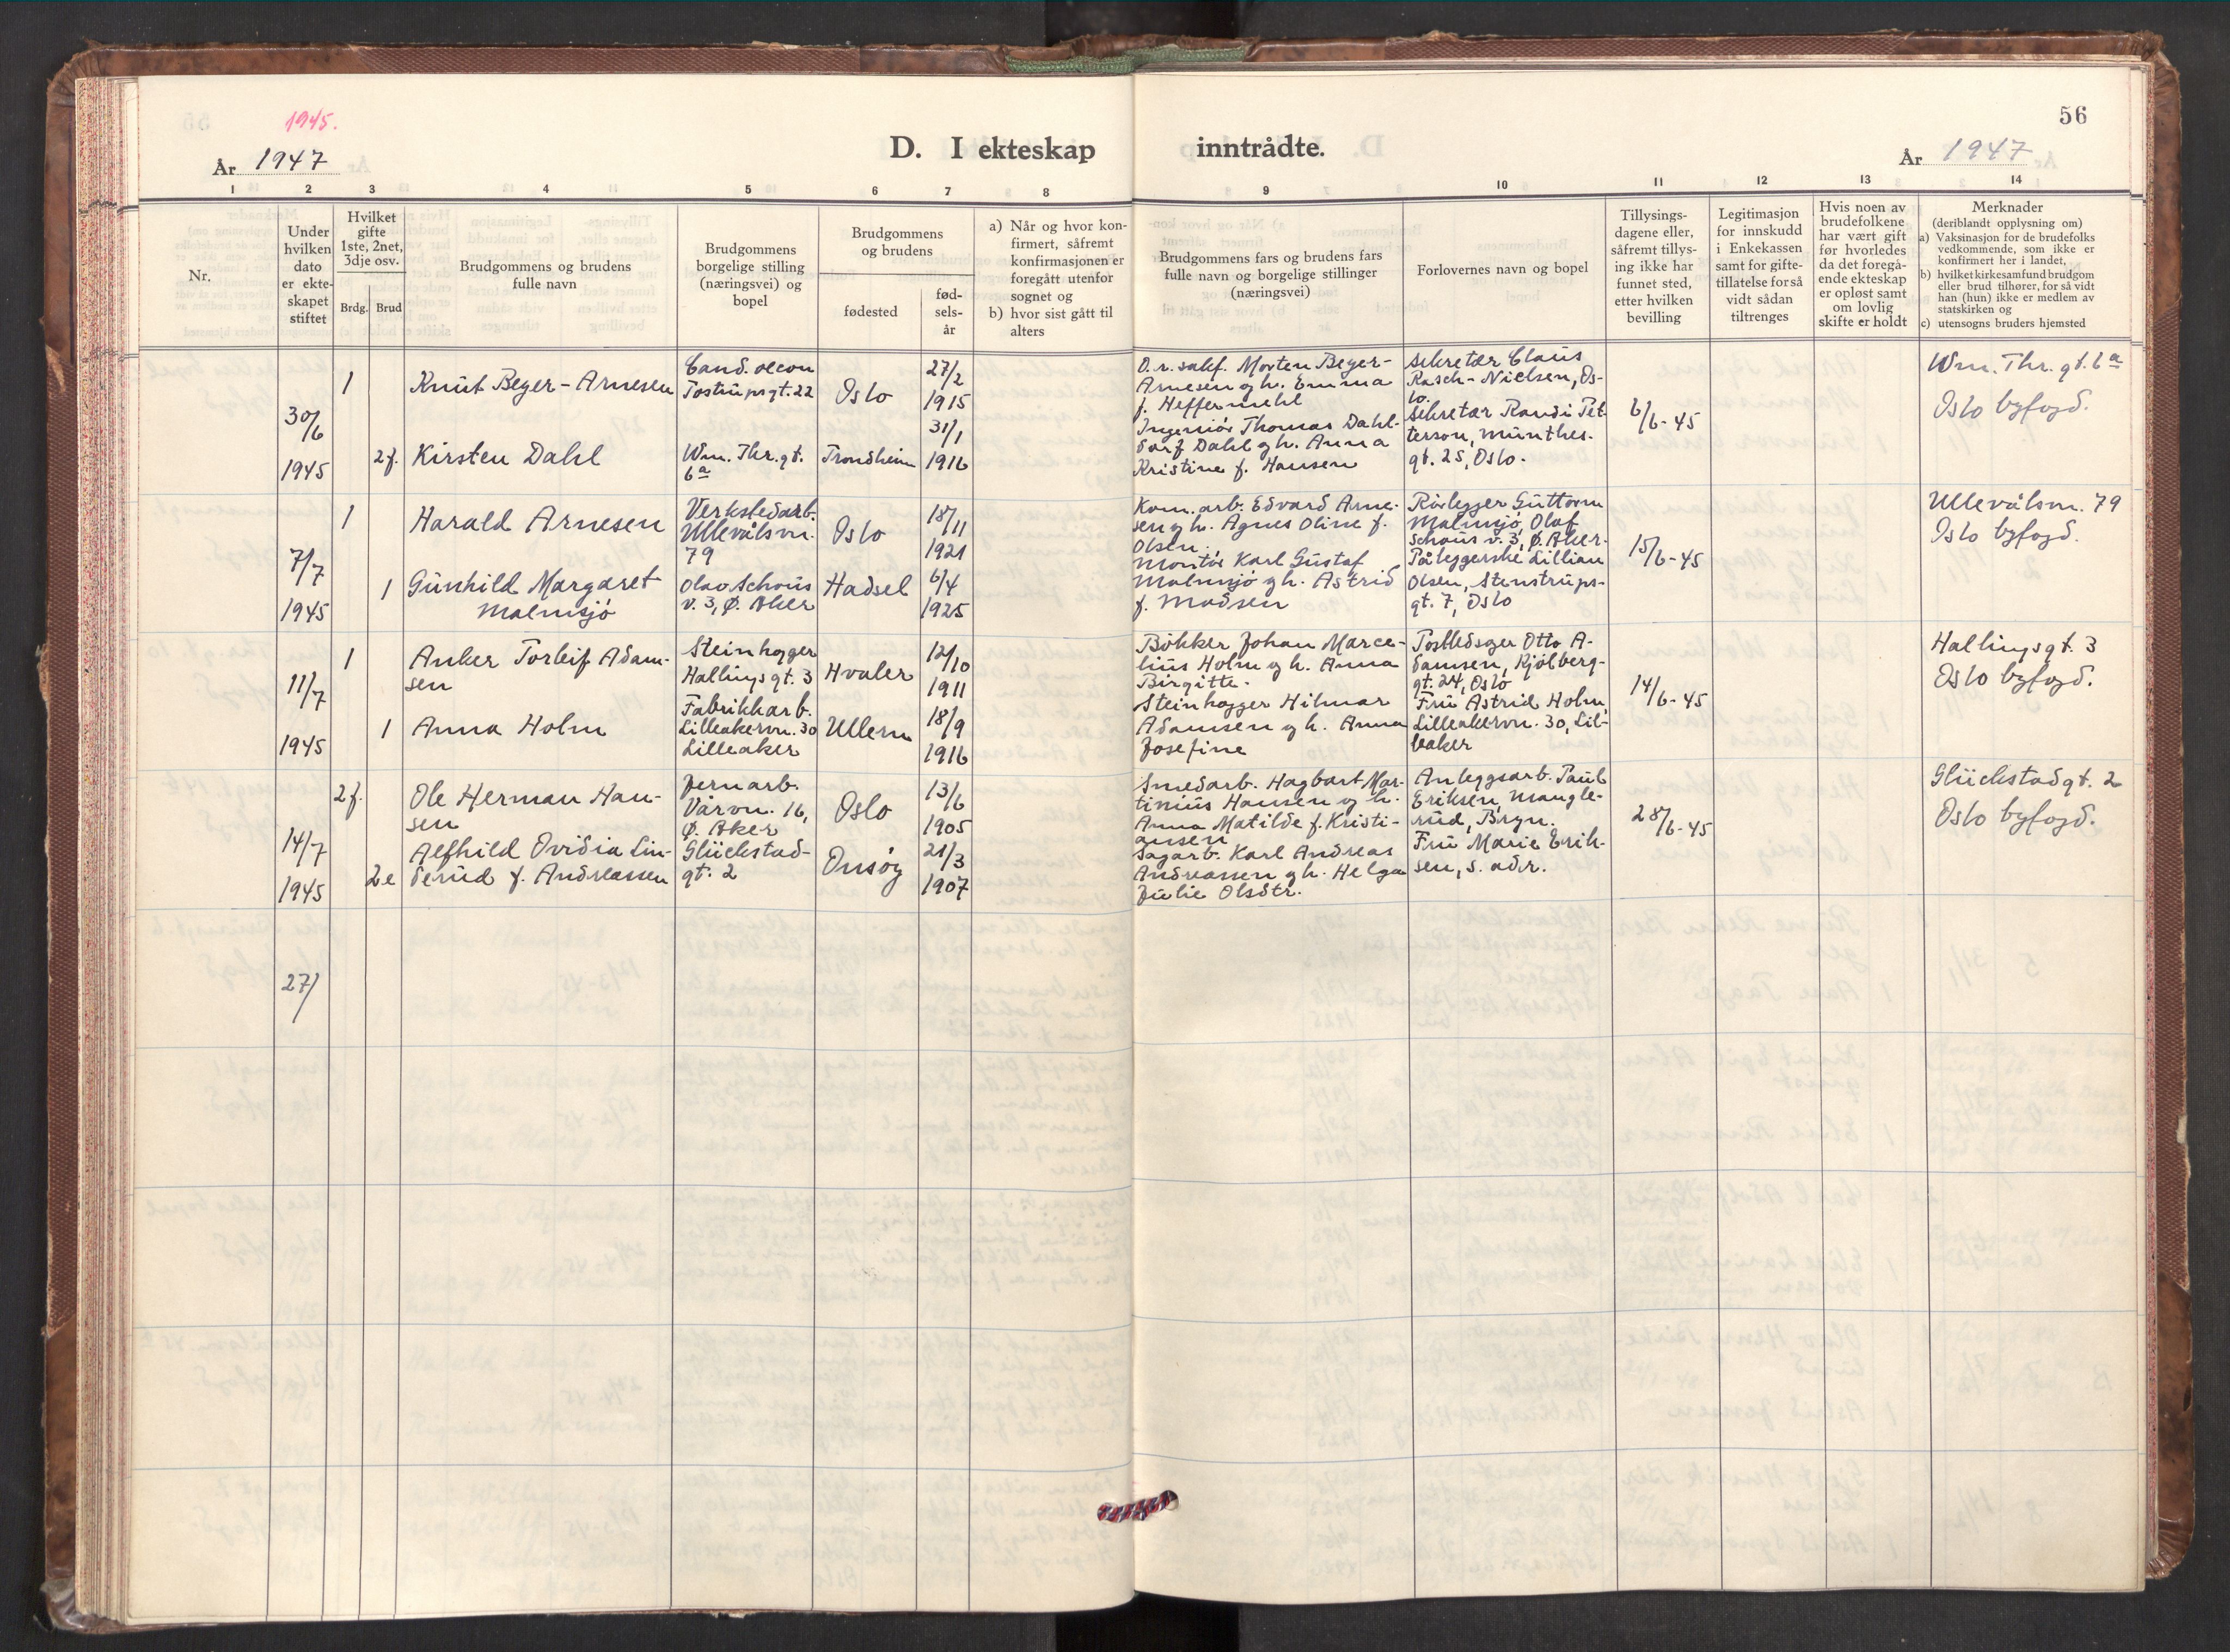 56
1945.
År 1947
D. I ekteskap inntrådte.
År 1947
1 2 3 4 5 6 7 8 9 10 11 12 13 14
Nr.
Under
hvilken
dato
er ekte-
skapet
stiftet
Hvilket
gifte
1ste, 2net,
3dje osv.
Brdg. Brud
Brudgommens og brudens
fulle navn
Brudgommens
borgelige stilling
(næringsvei) og
bopel
Brudgommens
og brudens
fødested
fød-
sels-
år
a) Når og hvor kon-
firmert, såfremt
konfirmasjonen er
foregått utenfor
sognet og
b) hvor sist gått til
alters
Brudgommens fars og brudens fars
fulle navn og borgelige stillinger
(næringsvei)
Forlovernes navn og bopel
Tillysings-
dagene eller,
såfremt tillys-
ing ikke har
funnet sted,
etter hvilken
bevilling
Legitimasjon
for innskudd
i Enkekassen
samt for gifte-
tillatelse for så
vidt sådan
tiltrenges
Hvis noen av
brudefolkene
har vært gift
før hvorledes
da det foregå-
ende ekteskap
er opløst samt
om lovlig
skifte er holdt
Merknader
(deriblandt opplysning om)
a) Vaksinasjon for de brudefolks
vedkommende, som ikke er
konfirmert her i landet,
b) hvilket kirkesamfund brudgom
eller brud tilhører, for så vidt
han (hun) ikke er medlem av
statskirken og
c) utensogns bruders hjemsted
30/6
1945
1
Knut Beyer-Arnesen
Cand. oecon
Tostrupsgt. 22
Oslo
27/2
1915
2f.
Kirsten Dahl
Wm. Thr. gt.
6a
Trondheim
31/1
1916
O.r.sakf. Morten Beyer-
Arnesen og h. Emma
f. Heffermehl
Ingeniør Thomas Dahl-
Dorf Dahl og h. Anna
Kristine f. Hansen
Sekretær Claus
Rasch-Nielsen, Os-
lo.
Sekretær Randi Pet-
terson, Munthes-
gt. 25, Oslo.
6/6-45
Wm. Thr. gt. 6a
Oslo byfogd.
7/7
1945
1
Harald Arnesen
Verkstedarb.
Ullevålsvn.
79
Oslo
18/11
1921
1
Gunhild Margaret
Malmsjø
Olav Schous
v. 3, Ø. Aker
Hadsel
6/4
1925
Kom. arb. Edvard Arne-
sen og h. Agnes Oline f.
Olsen.
Montør Karl Gustaf
Malmsjø og h. Astrid
f. Madsen
Rørlegger Guttorm
Malmsjø, Olaf
Schous v. 3, Ø. Aker.
Påleggerske Lillian
Olsen, Stenstrups-
gt. 7, Oslo
15/6-45
Ullevålsvn. 79
Oslo byfogd.
11/7
1945
1
Anker Torleif Adam-
sen
Steinhogger
Hallingsgt. 3
Hvaler
12/10
1911
1
Anna Holm
Fabrikkarb.
Lilleakervn. 30
Lilleaker
Ullern
18/9
1916
Bøkker Johan Marce-
lius Holm og h. Anna
Birgitte.
Steinhogger Hilmar
Adamsen og h. Anna
Josefine
Postbedsger Otto A-
damsen, Kjølberg-
gt. 24, Oslo
Fru Astrid Holm,
Lilleakervn. 30, Lil-
leaker
14/6-45
Hallingsgt. 3
Oslo byfogd.
14/7
1945
2f.
Ole Herman Han-
sen
Jernarb.
Vårvn. 16,
Ø. Aker
Oslo
13/6
1905
2e
Alfhild Ovidia Lin-
derud f. Andreassen
Glückstad-
gt. 2
Onsøy
21/3
1907
Smedarb. Hagbart Mar-
tinius Hansen og h.
Anna Matilde f. Kristi-
ansen
Sagarb. Karl Andreas
Andreassen og h. Helga
Julie Olsdtr.
Anleggsarb. Paul
Eriksen, Mangle-
rud, Bryn.
Fru Marie Erik-
sen, s. adr.
28/6-45
Glückstadgt. 2
Oslo byfogd.
27/